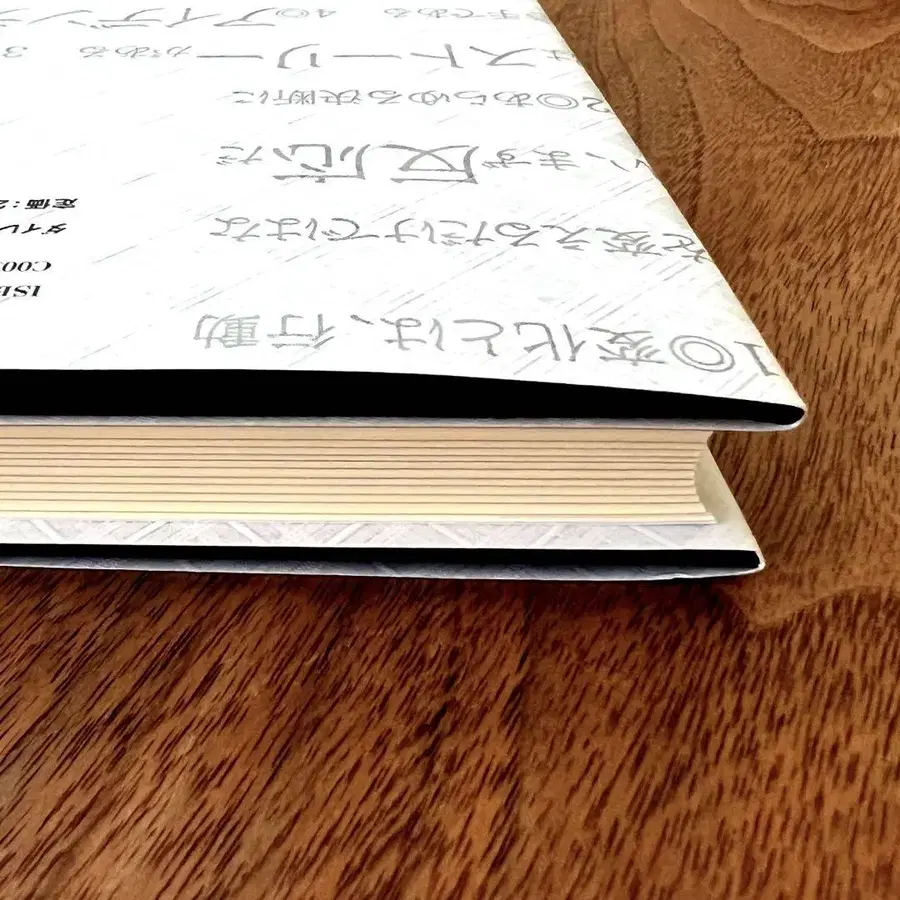 1◎変化とは、行動
を変えるだけではな
い、まず反応だ
2◎あらゆる決断に
はストーリーがある 3
手である 4◎アイデン
ISB
C00
ダイレ
定価：2